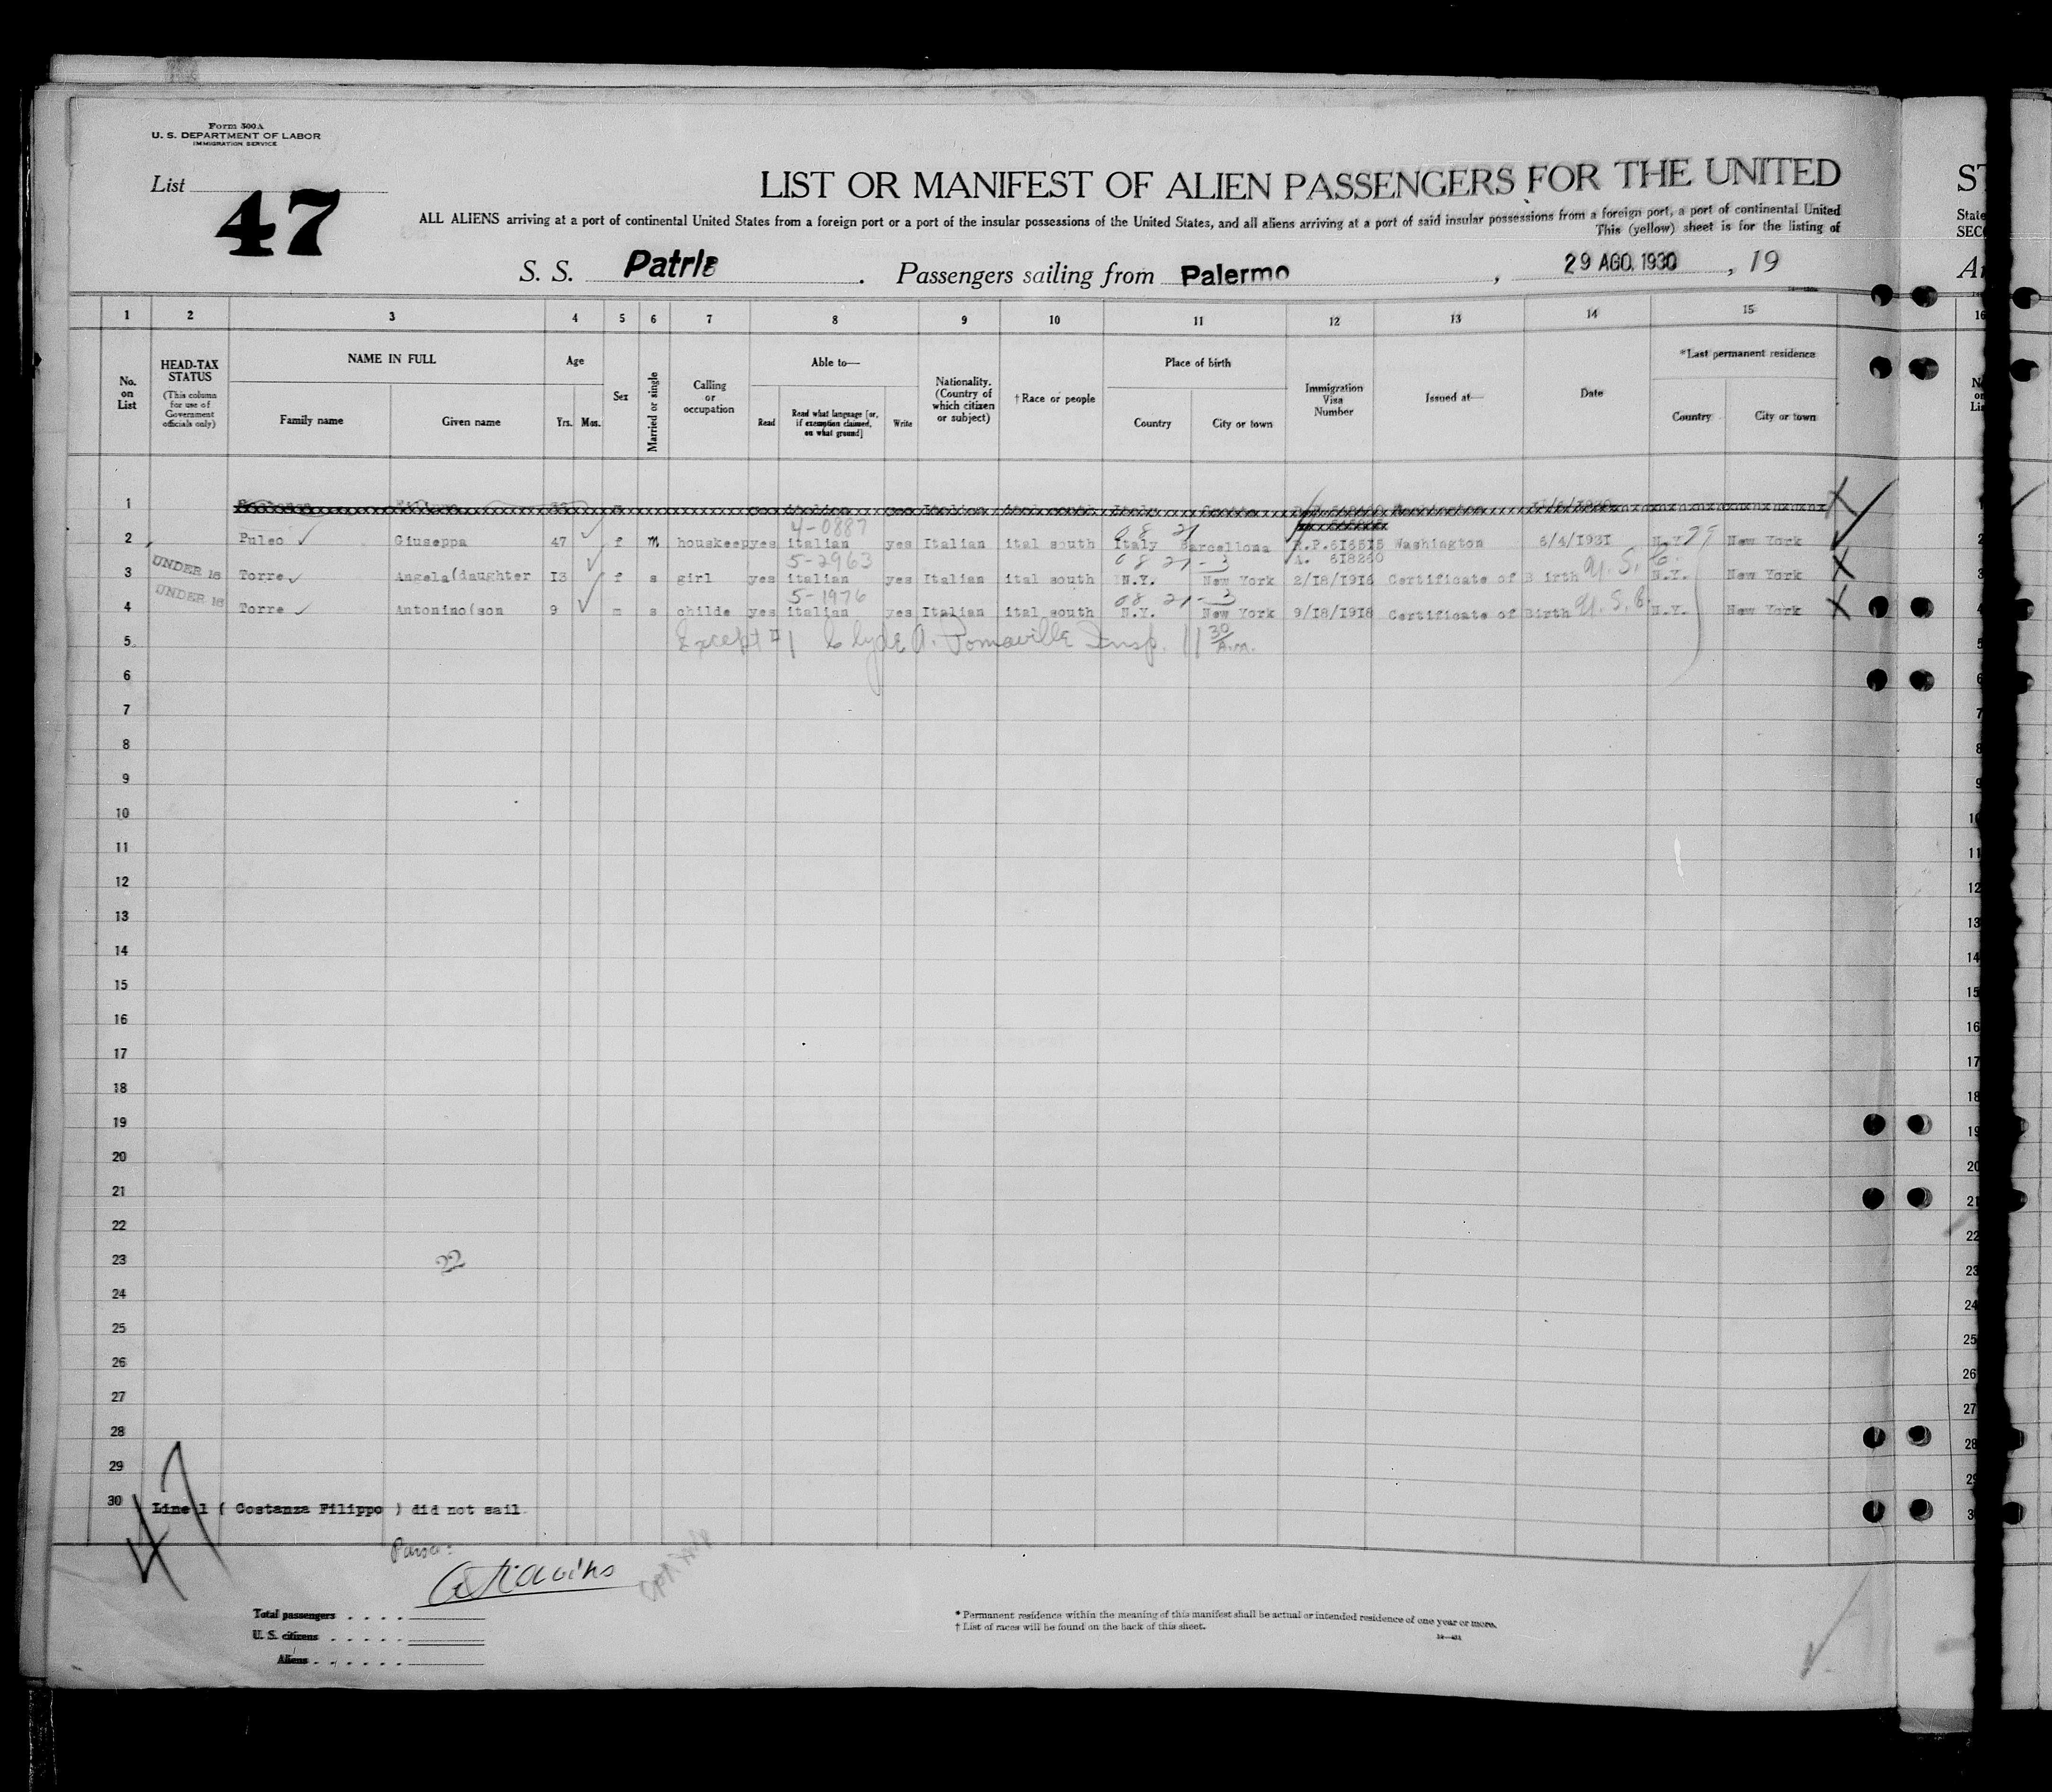 Form 500A
U. S. DEPARTMENT OF LABOR
IMMIGRATION SERVICE
List 47
LIST OR MANIFEST OF ALIEN PASSENGERS FOR THE UNITED
ALL ALIENS arriving at a port of continental United States from a foreign port or a port of the insular possessions of the United States, and all aliens arriving at a port of said insular possessions from a foreign port, a port of continental United
This (yellow) sheet is for the listing of
S. S. Patria. Passengers sailing from Palermo, 29 AGO. 1930, 19
ST
State
SEC
1 2 3 4 5 6 7 8 9 10 11 12 13 14 15 16
No. on List
HEAD-TAX STATUS
(This column for use of Government officials only)
NAME IN FULL
Family name Given name
Age
Yrs. Mos.
Sex
Married or single
Calling or occupation
Able to—
Read
Read what language [or, if exemption claimed, on what ground]
Write
Nationality. (Country of which citizen or subject)
† Race or people
Place of birth
Country City or town
Immigration Visa Number
Issued at—
Date
*Last permanent residence
Country City or town
1
4-0887
2 Puleo Giuseppa 47 f m houskeep yes italian yes Italian ital south Italy Barcellona R.P.616515 Washington 6/4/1931 N.Y. New York
5-2963
A. 618260
3 UNDER 16 Torre Angela(daughter 13 f s girl yes italian yes Italian ital south N.Y. New York 2/18/1916 Certificate of Birth U.S.C. N.Y. New York
5-1976
4 UNDER 16 Torre Antonino(son 9 m s childe yes italian yes Italian ital south N.Y. New York 9/18/1918 Certificate of Birth U.S.C. N.Y. New York
5 Except #1 Clyde A. Pomaville Insp. 11 30 A.M.
6
7
8
9
10
11
12
13
14
15
16
17
18
19
20
21
22
23 22
24
25
26
27
28
29
30 Line 1 ( Costanza Filippo ) did not sail
47
Purser:
Total passengers
U. S. citizens
Aliens
* Permanent residence within the meaning of this manifest shall be actual or intended residence of one year or more.
† List of races will be found on the back of this sheet.